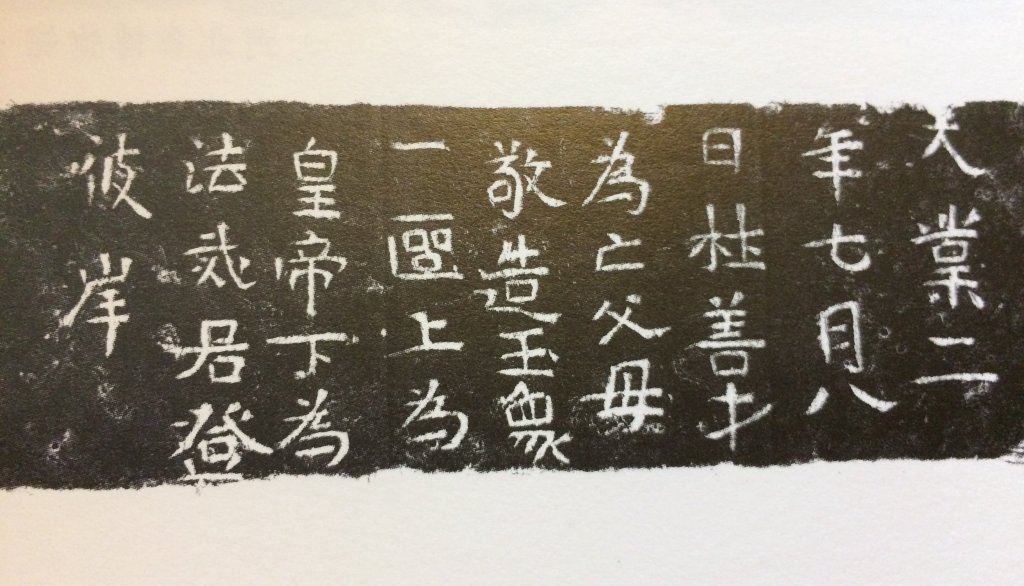 大業二
年七月八
日杜善才
為亡父母
敬造玉象
一區上為
皇帝下為
法登
彼岸